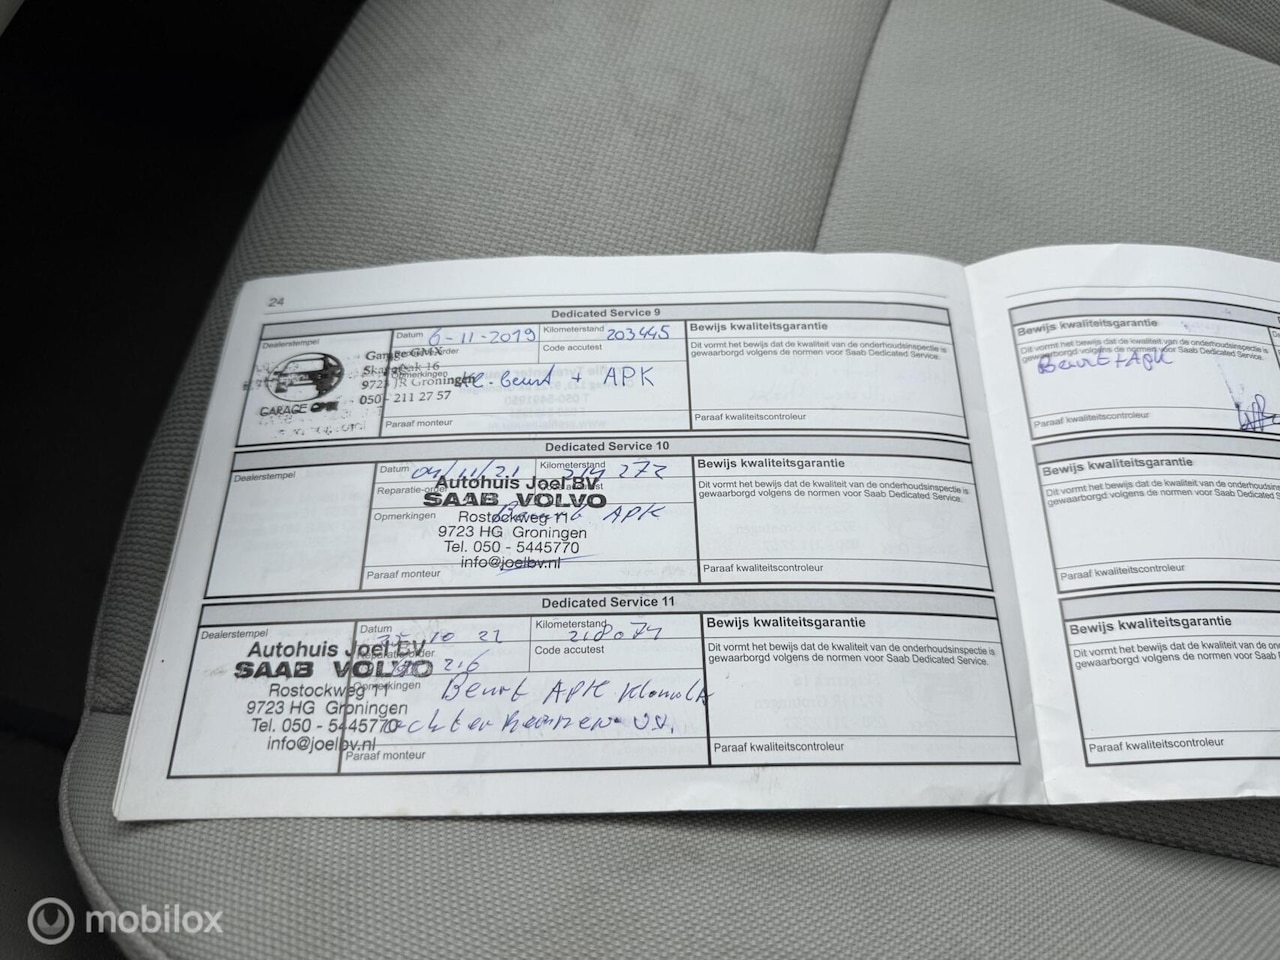 24
Dedicated Service 9
Dealerstempel
Datum 6-11-2019
Kilometerstand 203445
Code accutest
Garage GMX
Skagerrak 16
9723 JR Groningen
050 - 211 27 57
GARAGE GMX
Opmerkingen
kl. beurt + APK
Paraaf monteur
Bewijs kwaliteitsgarantie
Dit vormt het bewijs dat de kwaliteit van de onderhoudsinspectie is
gewaarborgd volgens de normen voor Saab Dedicated Service.
Paraaf kwaliteitscontroleur
Dedicated Service 10
Dealerstempel
Datum 04/11/21
Kilometerstand 214272
Code accutest
Reparatie-order
Autohuis Joel BV
SAAB VOLVO
Opmerkingen
Beurt APK
Rostockweg 11
9723 HG Groningen
Tel. 050 - 5445770
info@joelbv.nl
Paraaf monteur
Bewijs kwaliteitsgarantie
Dit vormt het bewijs dat de kwaliteit van de onderhoudsinspectie is
gewaarborgd volgens de normen voor Saab Dedicated Service.
Paraaf kwaliteitscontroleur
Dedicated Service 11
Dealerstempel
Datum
10 22
Kilometerstand 218074
Code accutest
Reparatie-order
Autohuis Joel BV
SAAB VOLVO
Opmerkingen
Beurt APK
achter remmen vv.
Rostockweg 11
9723 HG Groningen
Tel. 050 - 5445770
info@joelbv.nl
Paraaf monteur
Bewijs kwaliteitsgarantie
Dit vormt het bewijs dat de kwaliteit van de onderhoudsinspectie is
gewaarborgd volgens de normen voor Saab Dedicated Service.
Paraaf kwaliteitscontroleur
Bewijs kwaliteitsgarantie
Dit vormt het bewijs dat de kwaliteit van de onderhoudsinspectie is
gewaarborgd volgens de normen voor Saab Dedicated Service.
Beurt + APK
Paraaf kwaliteitscontroleur
Bewijs kwaliteitsgarantie
Dit vormt het bewijs dat de kwaliteit van de onderhoudsins
gewaarborgd volgens de normen voor Saab Dedicated S
Paraaf kwaliteitscontroleur
Bewijs kwaliteitsgarantie
Dit vormt het bewijs dat de kwaliteit van de on
gewaarborgd volgens de normen voor Saab De
Paraaf kwaliteitscontroleur
mobilox